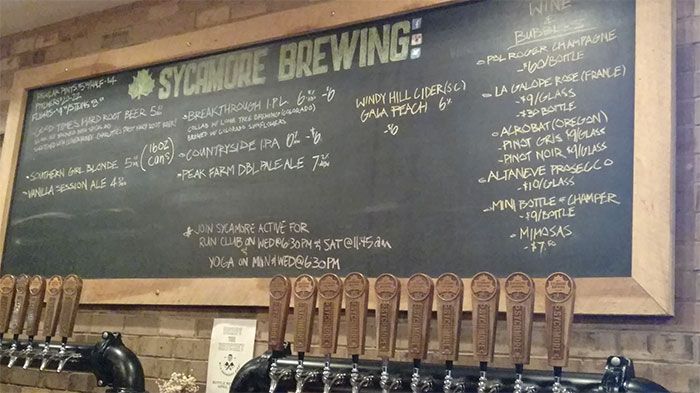 SYCAMORE BREWING
GOOD TIMES HARD ROOT BEER 5
SOUTHERN GIRL BLONDE 5
(16oz cans)
VANILLA SESSION ALE 4
BREAKTHROUGH I.P.L. 6
COLLAB W/ LONE TREE BREWING (COLORADO)
BREWED W/ COLORADO SUNFLOWERS
COUNTRYSIDE IPA
PEAK FARM DBL PALE ALE 7
WINDY HILL CIDER (SC)
GALA PEACH 6%
$6
* JOIN SYCAMORE ACTIVE FOR
RUN CLUB ON WED@6:30PM & SAT@11:45am
YOGA ON MON & WED@6:30PM
WINE
&
BUBBLES
- POL ROGER CHAMPAGNE
- $60/BOTTLE
- LA GALOPE ROSE (FRANCE)
- $9/GLASS
- $30 BOTTLE
- ACROBAT (OREGON)
- PINOT GRIS $9/GLASS
- PINOT NOIR $9/GLASS
- ALTANEVE PROSECCO
- $10/GLASS
- MINI BOTTLE OF CHAMPER
- $9/BOTTLE
- MIMOSAS
- $7.50